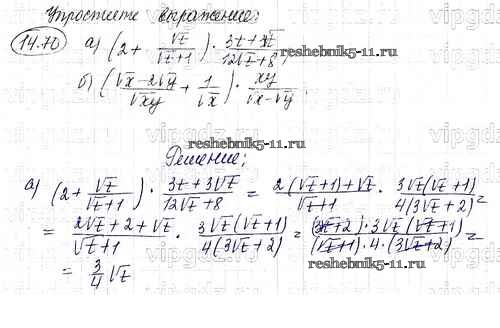 Упростите выражение:
14.70 а) (2 + √t/(√t+1)) · (3t+3√t)/(12√t+8);
б) ((√x-2√y)/√xy + 1/√x) · xy/(√x-√y).
reshebnik5-11.ru
Решение:
а) (2 + √t/(√t+1)) · (3t+3√t)/(12√t+8) = (2(√t+1)+√t)/(√t+1) · 3√t(√t+1)/4(3√t+2) =
= (2√t+2+√t)/(√t+1) · 3√t(√t+1)/4(3√t+2) = (3√t+2)·3√t(√t+1)/(√t+1)·4·(3√t+2) =
= 3/4 √t
reshebnik5-11.ru